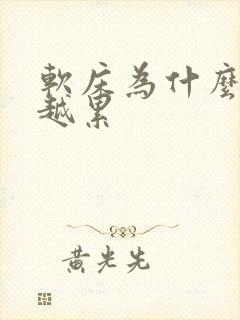 軟床為什麼
越累
黃光先